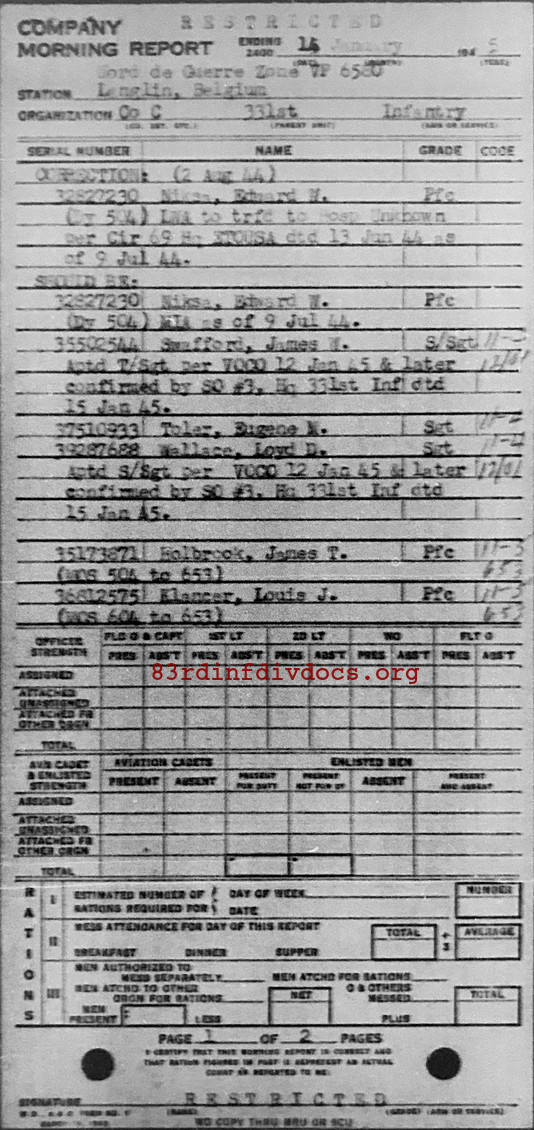 RESTRICTED
COMPANY
MORNING REPORT ENDING 2400 January 194 5
(DATE) (MONTH) (YEAR)
Nord de Guerre Zone VP
STATION Langlin, Belgium
ORGANIZATION Co C 331st Infantry
(CO. DET. ETC.) (PARENT UNIT) (ARM OR SERVICE)
SERIAL NUMBER NAME GRADE CODE
CORRECTION: (2 Aug 44)
32827230 Niksa, Edward W. Pfc
(Dy 504) LWA to trfd to Hosp Unknown
per Cir 69 Hq ETOUSA dtd 13 Jun 44 as
of 9 Jul 44.
SHOULD BE:
32827230 Niksa, Edward W. Pfc
(Dy 504) as of 9 Jul 44.
35502544 Swafford, James W. S/Sgt
Aptd T/Sgt per VOCO 12 Jan 45 & later
confirmed by SO #3, Hq 331st Inf dtd
15 Jan 45.
37510933 Toler, Eugene Sgt
39287688 Wallace, Loyd D. Sgt
Aptd S/Sgt per VOCO 12 Jan 45 & later
confirmed by SO #3. Hq 331st Inf dtd
15 Jan 45.
35173871 Holbrook, James T. Pfc
(MOS 504 to 653) 653
36812575 Klancer, Louis J. Pfc
(MOS 604 to 653) 653
OFFICER STRENGTH FLD O & CAPT 1ST LT 2D LT WO FLT O
PRES ABS'T PRES ABS'T PRES ABS'T PRES ABS'T PRES ABS'T
83rdinfdivdocs.org
ASSIGNED
ATTACHED UNASSIGNED
ATTACHED FR OTHER ORGN
TOTAL
AVN CADET & ENLISTED STRENGTH AVIATION CADETS ENLISTED MEN
PRESENT ABSENT PRESENT FOR DUTY PRESENT NOT FOR DY ABSENT PRESENT AND ABSENT
ASSIGNED
ATTACHED UNASSIGNED
ATTACHED FR OTHER ORGN
TOTAL
RATIONS
I ESTIMATED NUMBER OF RATIONS REQUIRED FOR DAY OF WEEK DATE NUMBER
II MESS ATTENDANCE FOR DAY OF THIS REPORT TOTAL ÷ 3 AVERAGE
BREAKFAST DINNER SUPPER
III MEN AUTHORIZED TO MESS SEPARATELY MEN ATCHD FOR RATIONS
MEN ATCHD TO OTHER ORGN FOR RATIONS NET O & OTHERS MESSED TOTAL
MEN PRESENT LESS PLUS
PAGE 1 OF 2 PAGES
I CERTIFY THAT THIS MORNING REPORT IS CORRECT AND
THAT RATION FIGURES IN PART III REPRESENT AN ACTUAL
COUNT OR REPORTED TO ME:
RESTRICTED
SIGNATURE
(NAME) (GRADE) (ARM OR SERVICE)
W.D. A.G.O. FORM NO. 1
NO COPY THRU MRU OR SCU